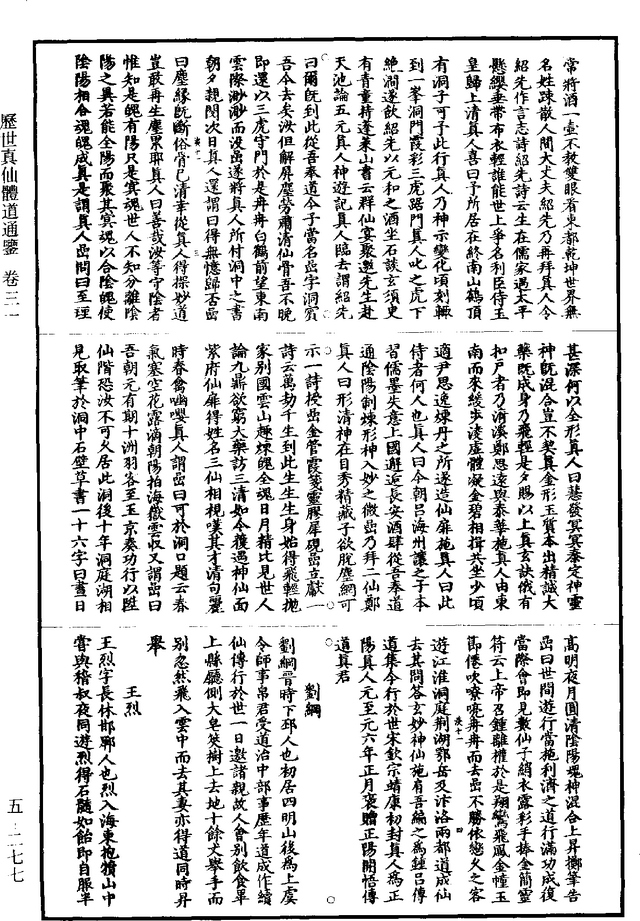 常將酒一壷不教雙眼看東都乾坤世界無
名姓疎散人間大丈夫紹先乃再拜真人令
紹先作言志詩紹先詩云生在儒家遇太平
懸纓垂帶布衣輕誰能世上爭名利臣侍玉
皇歸上清真人喜曰予所居在終南山鶴頂
有洞子可予此行真人乃神示變化頃刻輙
到一峯洞門霞彩三虎踞門真人叱之虎下
絕澗遂飲紹先以元和之酒坐石談玄須史
有青童持蓬萊山書云群仙宴聚邀先生赴
天池論五元真人神遊記真人臨去謂紹先
曰爾既到此從吾奉道今子當名嵒字洞賓
吾今去矣汝但解屏塵勞爾清仙骨吾不晚
即還以三虎守門於是冉冉白鶴前望東南
雲際渺渺而沒嵒遂將真人所付洞中之書
朝夕親閱次日真人還謂曰得無憶歸否嵒
曰塵緣既斷俗骨已清幸從真人得探妙道
豈敢再生塵累耶真人曰善哉汝等守陰者
惟知是魄有陽只是寘魂世人不知分離陰
陽之異若能全陽而聚其寘魂以合陰魄使
陰陽相合魂魄成真是謂真人嵒問曰至理
甚深何以全形真人曰慧發冥冥泰定神靈
神既混合豈不契真金形玉質本出精誠大
藥既成身乃飛輕是夕賜以上真玄訣俄有
扣戶者乃清溪鄭思遠與泰華施真人由東
南而來緩步凌虛體凝金碧相揖共坐少頃
適尹思逸煉丹之所遂造仙扉施真人曰此
侍者何人也真人曰今朝呂海州讓之子本
習儒墨失意上國邂逅長安酒肆從吾奉道
通陰陽制煉形神入妙之微嵒乃拜二仙鄭
真人曰形清神在目秀精藏子欲脫塵網可
示一詩授嵒金管霞箋靈膠犀硯嵒立獻一
詩云萬劫千生到此生生生身始得飛輕拋
家別國雲山趣煉魄全魂日月精比見世人
論九鼎欲窮大藥訪三清如今獲遇神仙面
紫府仙扉得姓名三仙相視嘆其才清句麗
時春禽嚶真人謂嵒曰可於洞口題云春
氣塞空花露滴朝陽拍海嶽雲收又謂嵒曰
吾朝元有期十洲羽客至玉京奏功行以陞
仙階恐汝不可久居此洞後十年洞庭湖相
見取筆於洞中石壁草書一十六字曰晝日
高明夜月圓清陰陽魂神混合上昇擲筆告
嵒曰世間遊行當施利濟之道行滿功成復
當際會即見數仙子絹衣霞彩手捧金簡靈
符云上帝召鍾離權於是翔鸞飛鳳金幢玉
節僊吹嘹喨冉冉而去嵒不勝依戀久之客
遊江淮洞庭荆湖鄂岳及汴洛兩都道成仙
去其問答玄妙神仙施有吾編之為鍾呂傳
道集今行於世宋欽宗靖康初封真人為正
陽真人元至元六年正月褒贈正陽開悟傳
道真君
劉綱
劉綱晉時下邳人也初居四明山後為上虞
令師事帛君受道治中部事歷年道成作續
仙傳行於世一日邀諸親故人會別飲食畢
上縣廳側大皂莢樹上去地十餘丈舉手而
別忽然飛入雲中而去其妻亦得道同時昇
舉
王烈
王烈字長休邯鄲人也烈入海東抱犢山中
嘗與稽叔夜同遊烈得石髓如飴即自服半
歷世真仙體道通鑒 卷三一
五—二七七